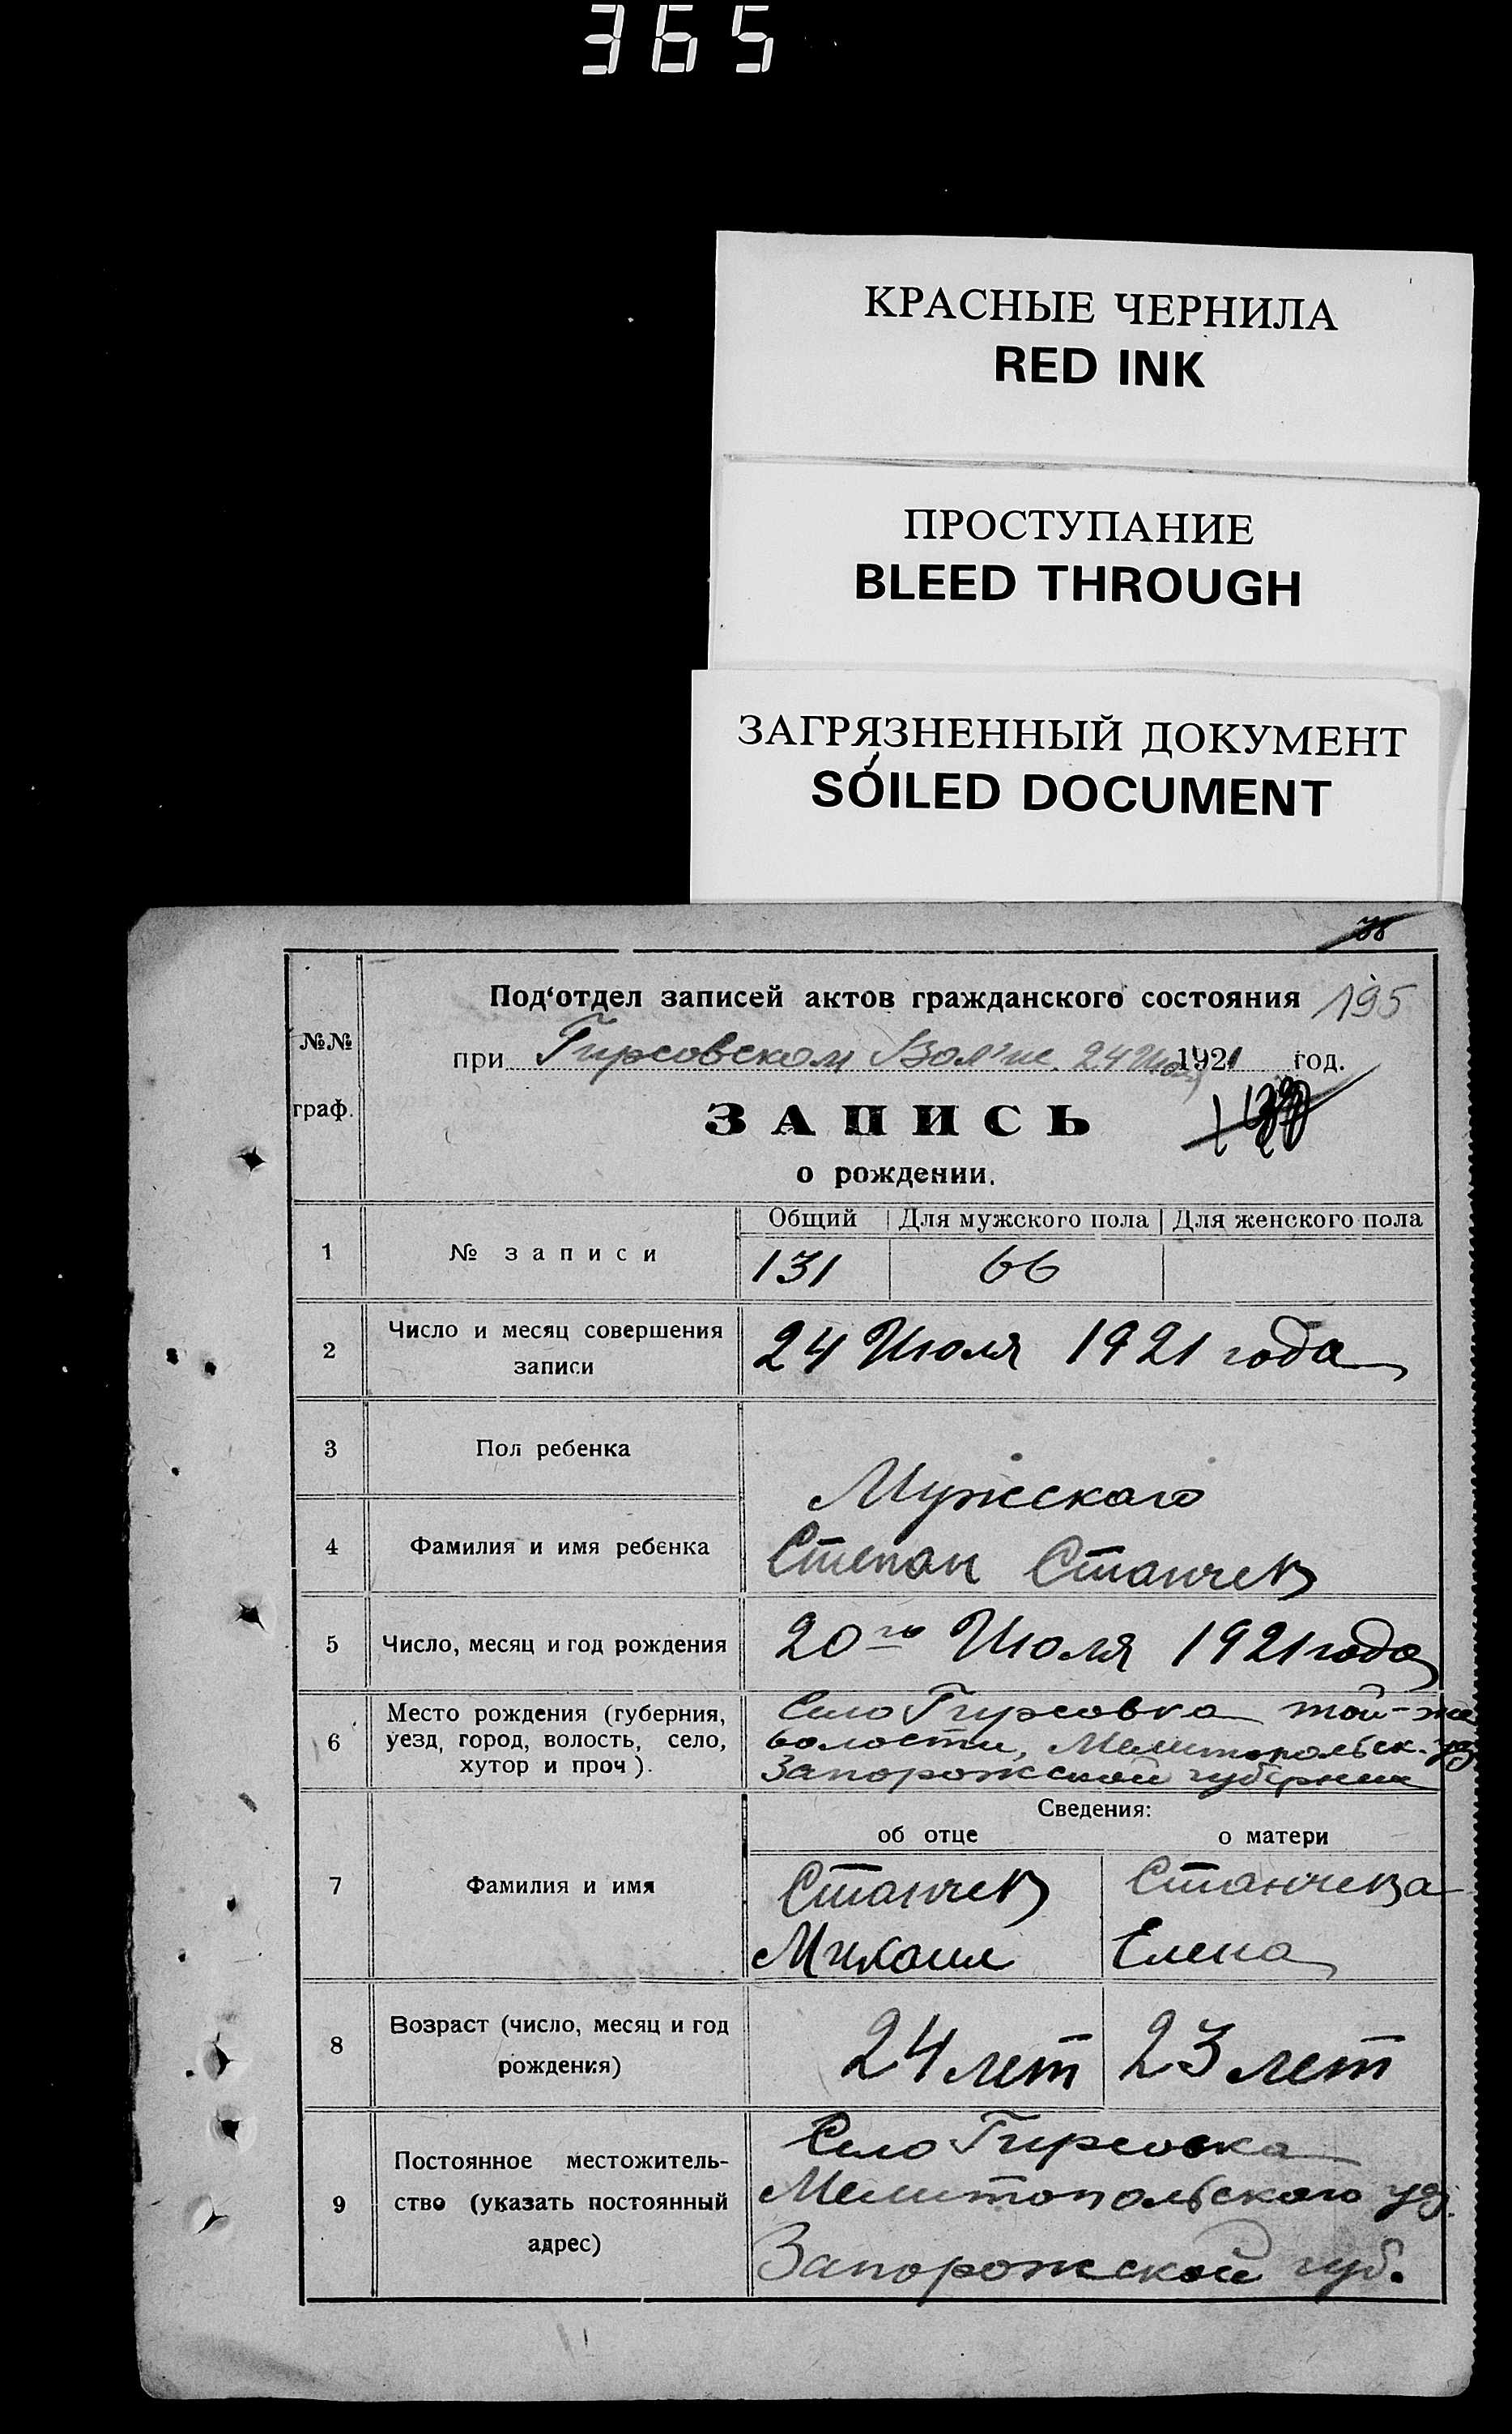 365
КРАСНЫЕ ЧЕРНИЛА
RED INK
ПРОСТУПАНИЕ
BLEED THROUGH
ЗАГРЯЗНЕННЫЙ ДОКУМЕНТ
SOILED DOCUMENT
№№ граф.
Под‘отдел записей актов гражданского состояния 195
при Гирсовском 24 Июля 1921 год.
ЗАПИСЬ
о рождении.
Общий Для мужского пола Для женского пола
1 № записи 131 66
2 Число и месяц совершения записи 24 Июля 1921 года
3 Пол ребенка Мужскаго
4 Фамилия и имя ребенка Степан Станчев
5 Число, месяц и год рождения 20го Июля 1921 года
6 Место рождения (губерния, уезд, город, волость, село, хутор и проч).
Село Гирсовка той-же
волости, Мелитопольск. уез
Запорожской губернии
Сведения:
об отце о матери
7 Фамилия и имя
Станчев Станчева
Михаил Елена
8 Возраст (число, месяц и год рождения) 24 лет 23 лет
9 Постоянное местожитель-
ство (указать постоянный
адрес)
Село Гирсовка
Мелитопольскаго уез.
Запорожской губ.